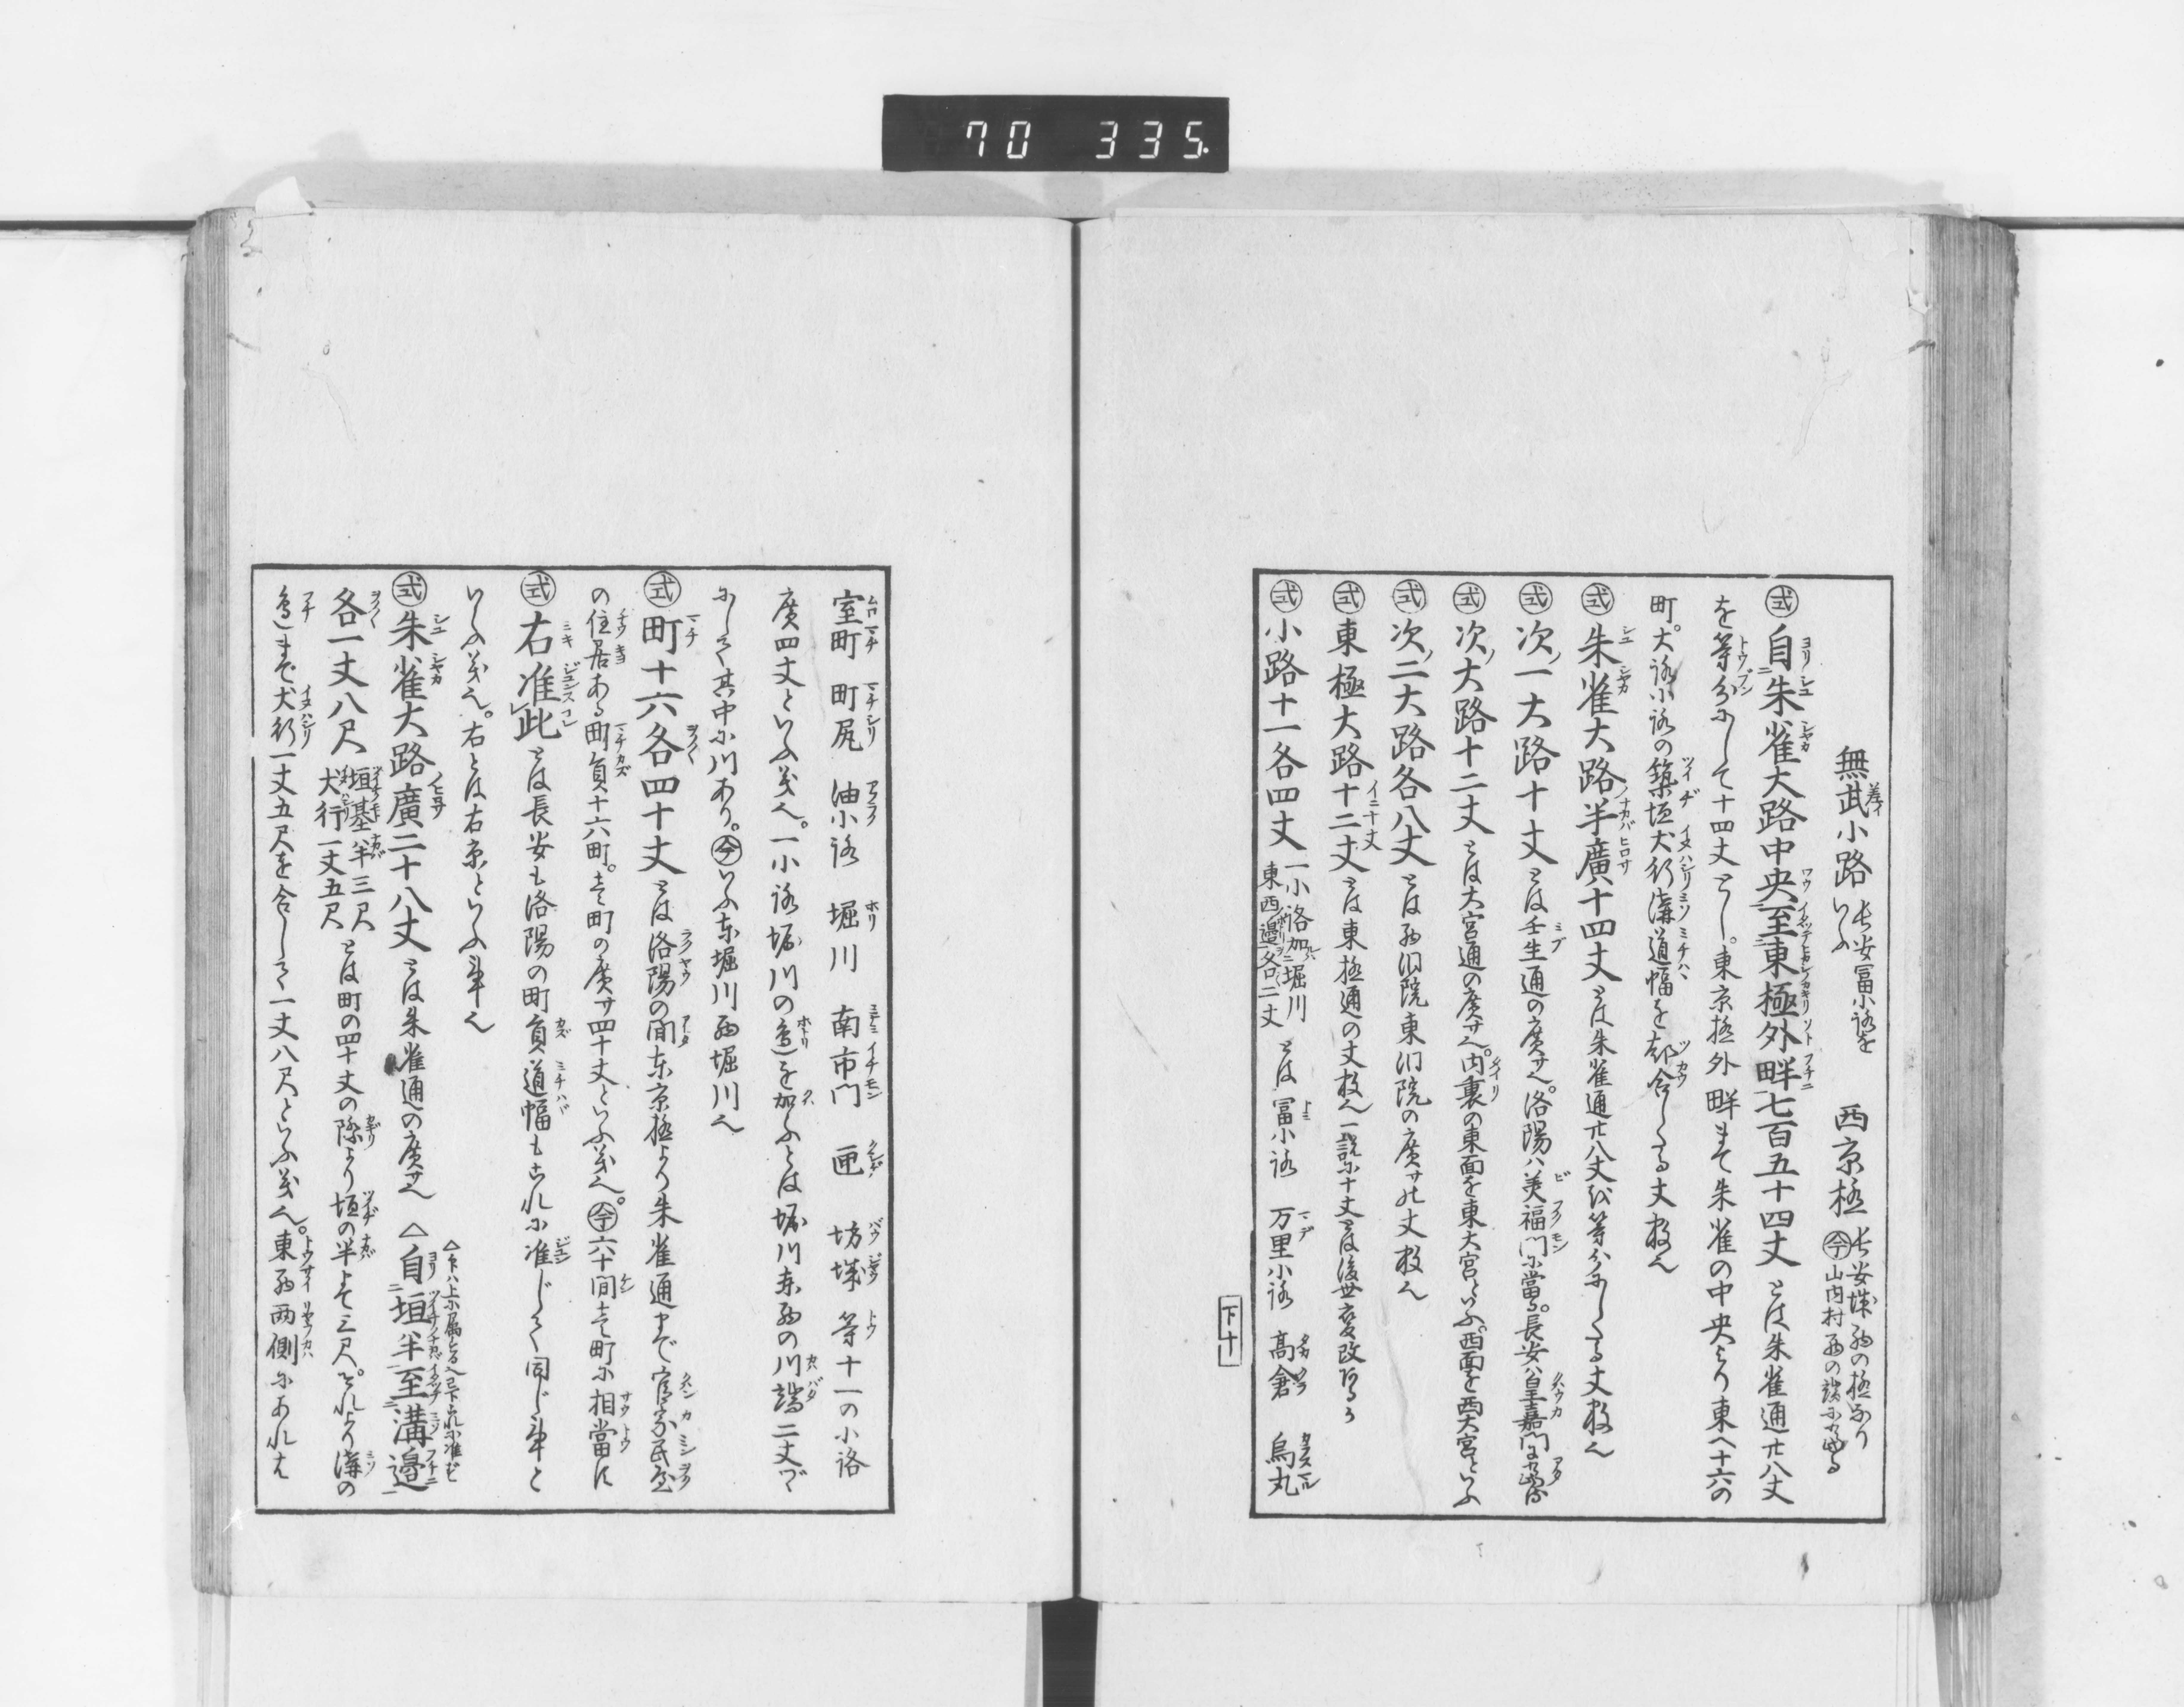 70 335.
無武小路 長安冨小路をいふ 西京極 長安城西の極なり ㊂今 山内村西の
式 自朱雀大路中央至東極外畔七百五十四丈 とは朱雀通廿八丈
を等分にして十四丈とし。東京極外畔まて朱雀の中央より東へ十六の
町。大路小路の築垣犬行溝道幅を都合したる丈数也
式 朱雀大路半廣十四丈 とは朱雀通廿八丈を等分にしたる丈数也
式 次一大路十丈 とは壬生通の廣サ也。洛陽ハ美福門に當る。長安ハ皇嘉門に
式 次大路十二丈 とは大宮通の廣サ也。内裏の東面を東大宮といふ。西面を西大宮といふ
式 次二大路各八丈 とは西洞院東洞院の廣サの丈数也
式 東極大路十二丈 とは東極通の丈数也 一説に十丈とは後世変改
式 小路十一各四丈 一小路加堀川東西邊各二丈 とは 冨小路 万里小路 髙倉 烏丸
下十
室町 町尻 油小路 堀川 南市門 匣 坊城 等十一の小路
廣四丈といふ義也。一小路堀川の邉を加ふとは堀川東西の川端二丈づゝ
にして其中に川あり。今いふ東堀川西堀川也
式 町十六各四十丈 とは洛陽の間東京極より朱雀通まで官家民屋
の住居ある町員十六町。壱町の廣サ四十丈といふ義也。今六十間壱町に相當に
式 右准此 とは長安も洛陽の町員道幅もこれに准じて同じ事と
いふ義也。右とは右京といふ事也
式 朱雀大路廣二十八丈 とは朱雀通の廣サ也 △自垣半至溝邉
各一丈八尺 垣基半三尺 犬行一丈五尺 とは町の四十丈の際より垣の半まで三尺。それより溝の
邉まで犬行一丈五尺を合して一丈八尺といふ義也。東西両側にあれは